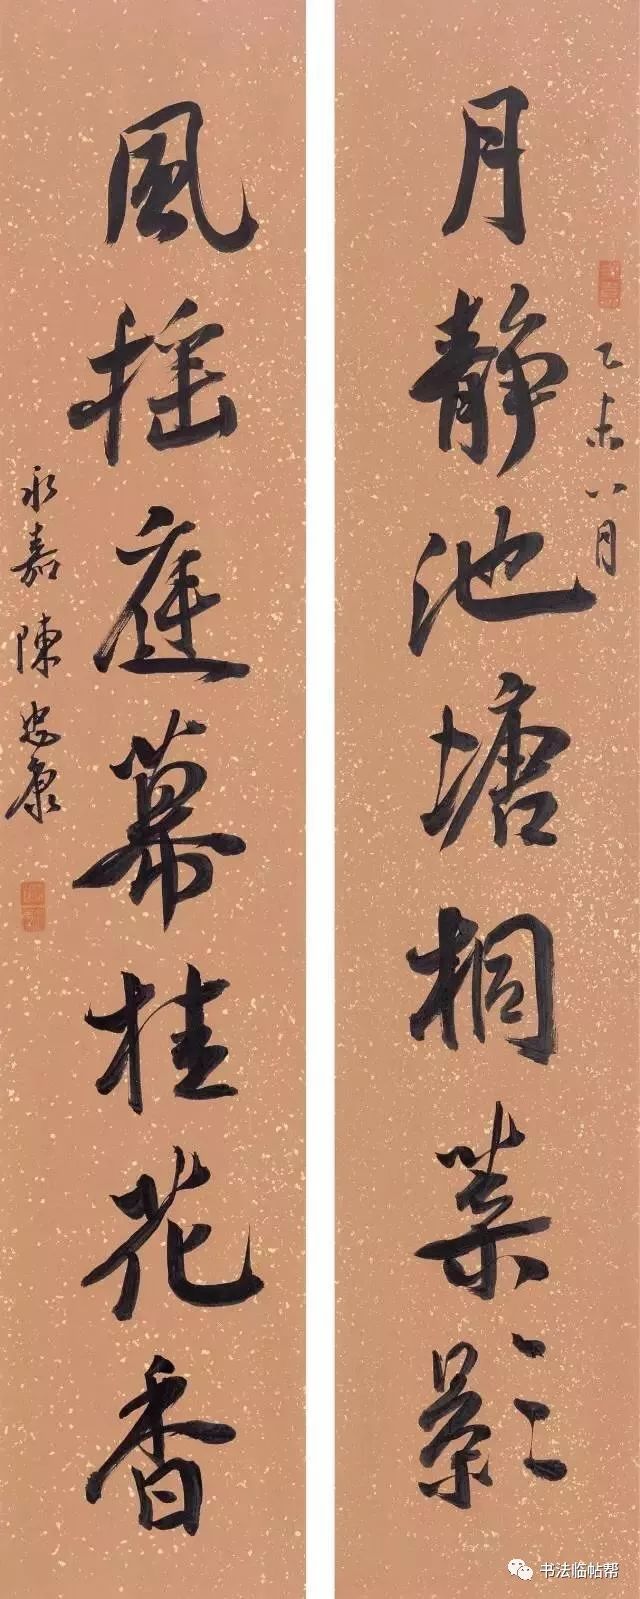 乙未八月
月靜池塘桐葉影
風摇庭幕桂花香
永嘉陳忠康
书法临帖帮